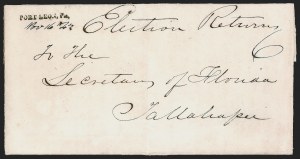 PORT LEON, Fa.
Nov 14
Election Returns
6
To The
Secretary of Florida
Tallahassee